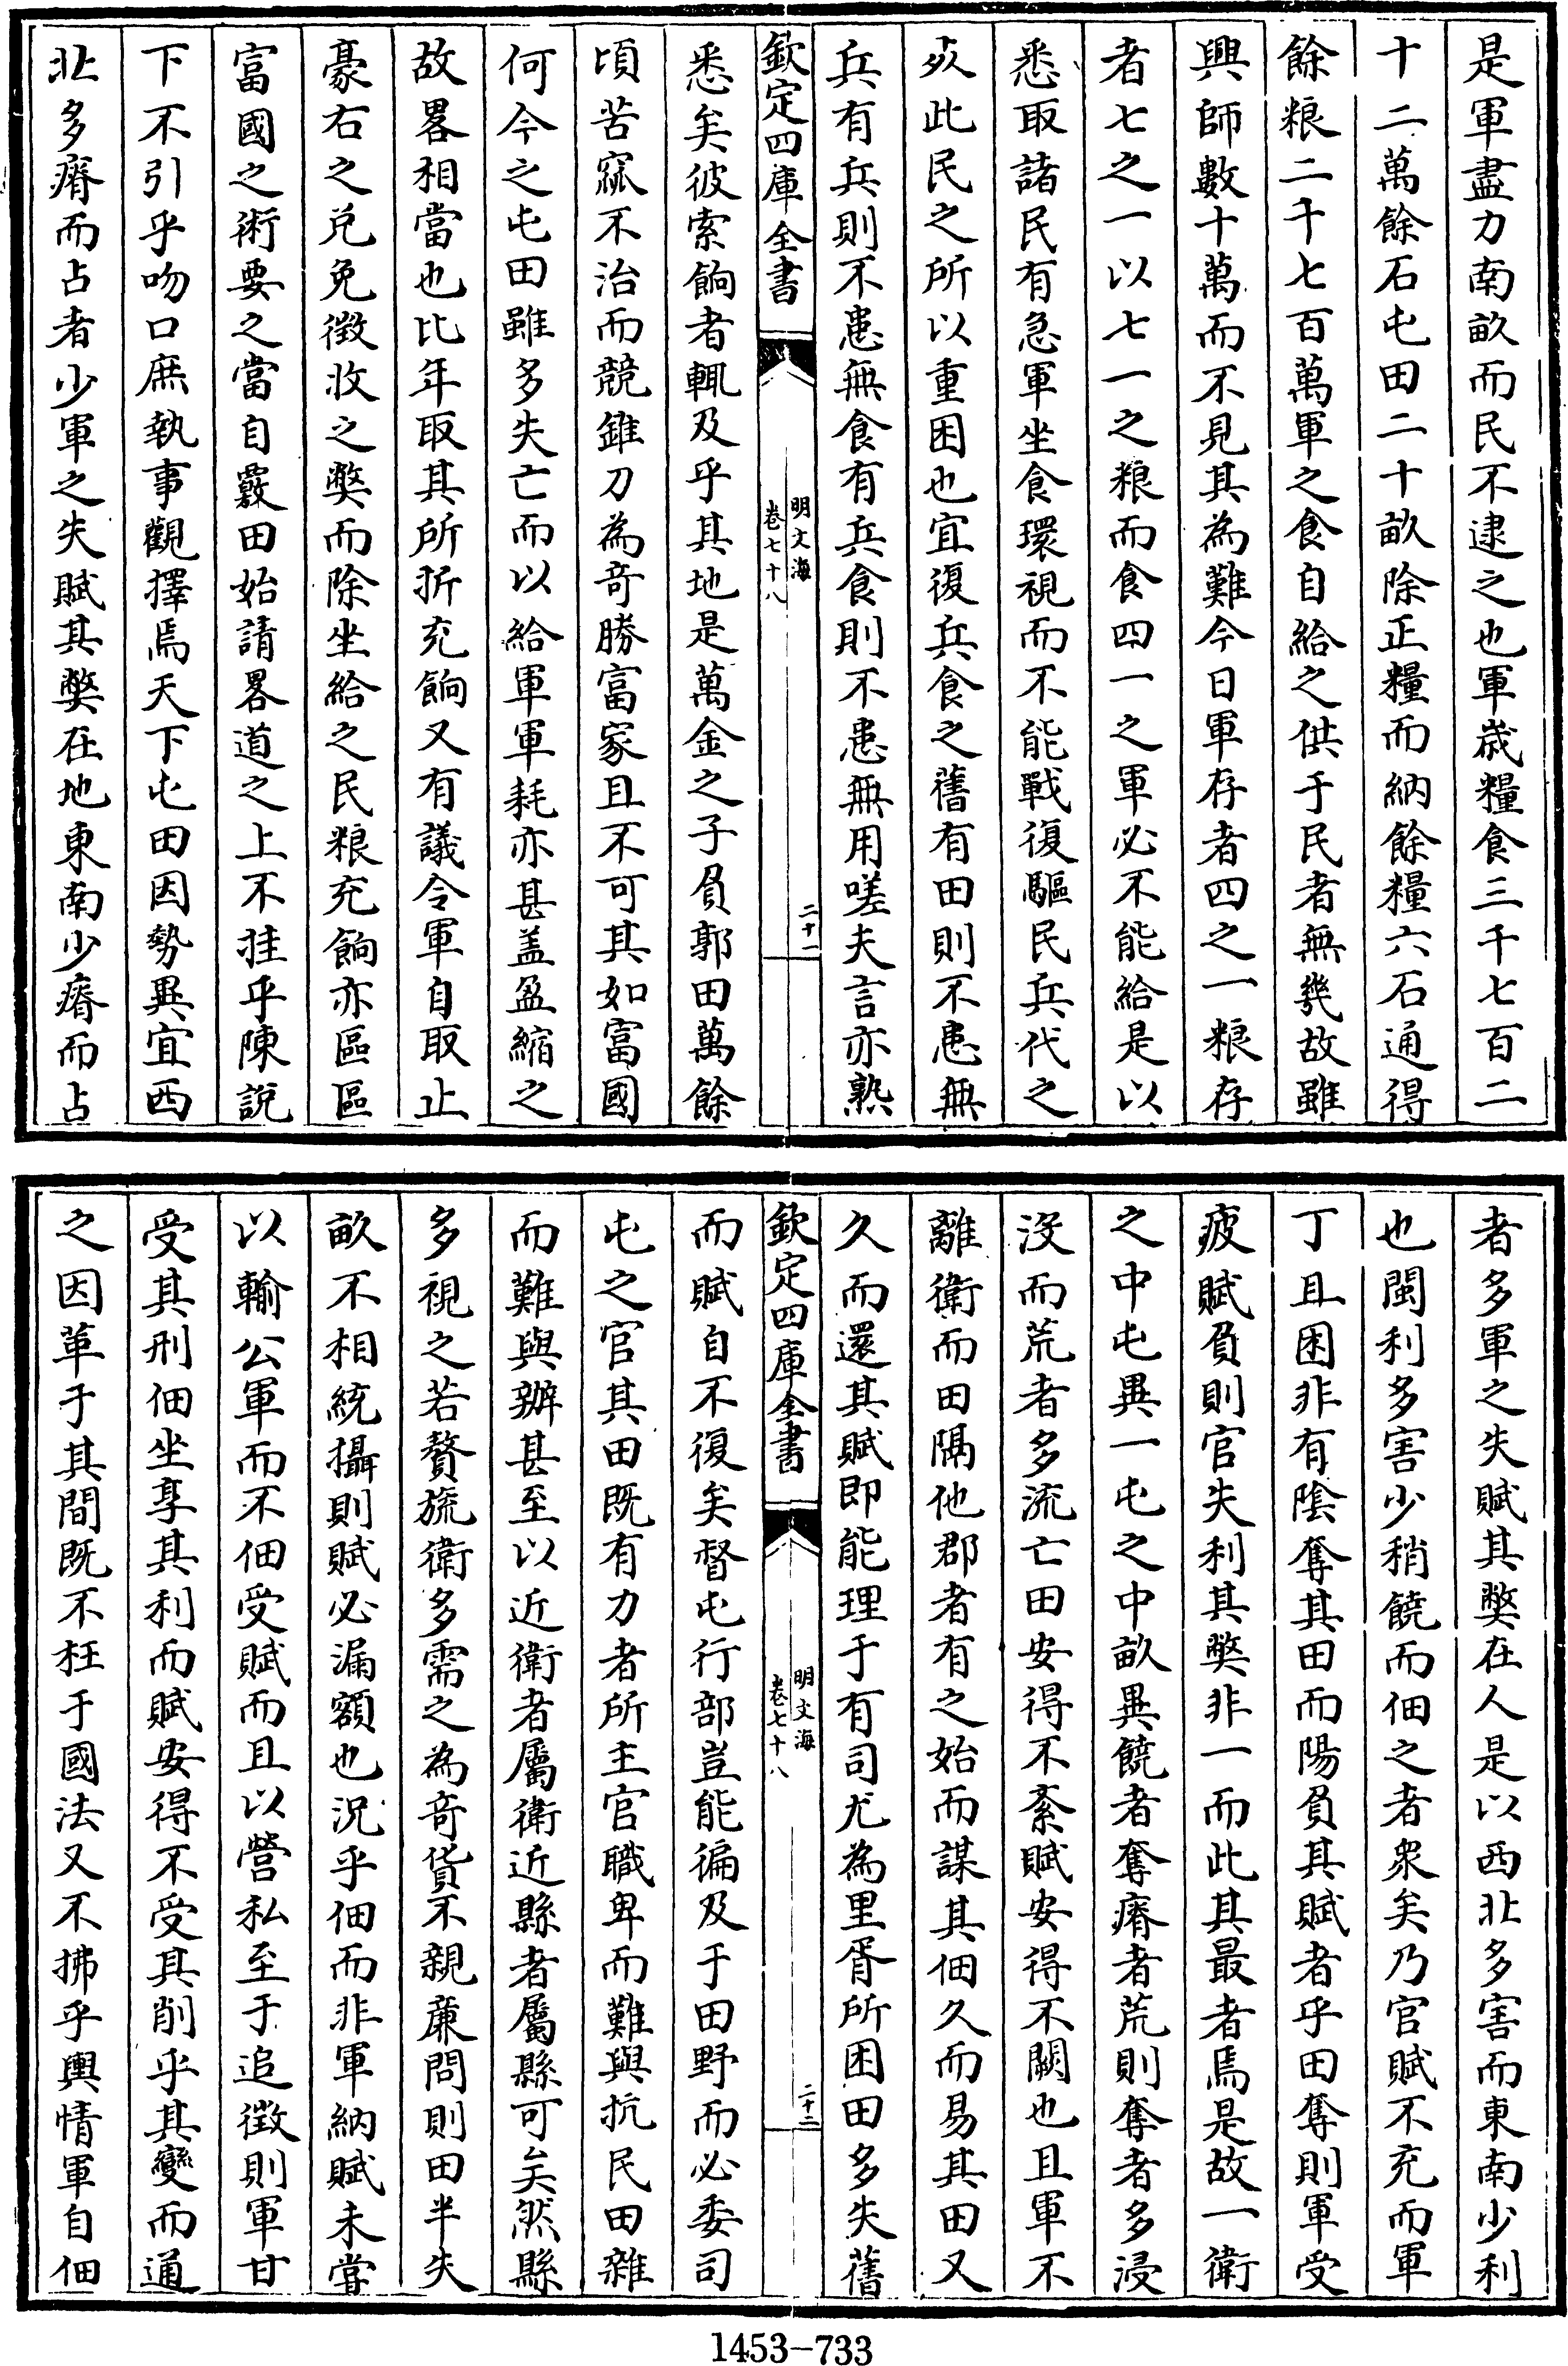 是軍盡力南畝而民不逮之也軍歳糧食三千七百二
十二萬餘石屯田二十畝除正糧而納餘糧六石通得
餘粮二千七百萬軍之食自給之供于民者無幾故雖
興師數十萬而不見其為難今日軍存者四之一粮存
者七之一以七一之粮而食四一之軍必不能給是以
悉取諸民有急軍坐食環視而不能戰復驅民兵代之
此民之所以重困也宜復兵食之舊有田則不患無
兵有兵則不患無食有兵食則不患無用嗟夫言亦熟
欽定四庫全書
明文海
卷七十八
二十一
悉矣彼索餉者輒及乎其地是萬金之子負郭田萬餘
頃苦窳不治而競錐刀為竒勝富家且不可其如富國
何今之屯田雖多失亡而以給軍軍耗亦甚盖盈縮之
故畧相當也比年取其所折充餉又有議令軍自取止
豪右之兑免徴收之弊而除坐給之民粮充餉亦區區
富國之術要之當自覈田始請畧道之上不挂乎陳說
下不引乎吻口庶執事觀擇焉天下屯田因勢異宜西
北多瘠而占者少軍之失賦其弊在地東南少瘠而占
者多軍之失賦其弊在人是以西北多害而東南少利
也閩利多害少稍饒而佃之者衆矣乃官賦不充而軍
丁且困非有陰奪其田而陽負其賦者乎田奪則軍受
疲賦負則官失利其弊非一而此其最者焉是故一衛
之中屯異一屯之中畝異饒者奪瘠者荒則奪者多浸
沒而荒者多流亡田安得不紊賦安得不闕也且軍不
離衛而田隔他郡者有之始而謀其佃久而易其田又
久而還其賦即能理于有司尤為里胥所困田多失舊
欽定四庫全書
明文海
卷七十八
二十二
而賦自不復矣督屯行部豈能徧及于田野而必委司
屯之官其田既有力者所主官職卑而難與抗民田雜
而難與辦甚至以近衛者屬衛近縣者屬縣可矣然縣
多視之若贅旒衛多需之為竒貨不親亷問則田半失
畝不相統攝則賦必漏額也況乎佃而非軍納賦未嘗
以輸公軍而不佃受賦而且以營私至于追徴則軍甘
受其刑佃坐享其利而賦安得不受其削乎其變而通
之因革于其間既不枉于國法又不拂乎輿情軍自佃
1453-733